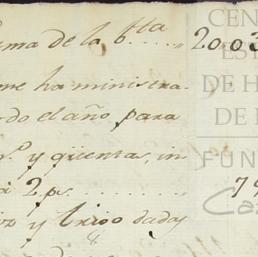 uma de la 6.ta ..... 2003
me ha ministra
do el año para
s.s y qüenta, in
2 p.s ........ 79
y trigo dada
CEN
EST
DE H
DE
FUN
Ca